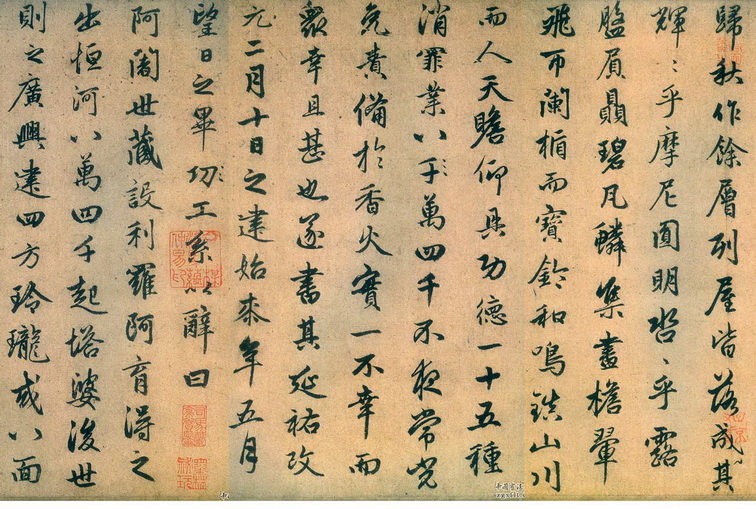 歸秋作餘層列屋皆落成其
輝〻乎摩尼圓明〻乎露
盤眉贔碧瓦鱗集畫檐翬
飛帀闌楯而寶鈴和鳴鎮山川
而人天瞻仰具功德一十五種
消罪業八千萬四千不夜常光
免責備於香火實一不幸而
衆幸且甚也遂書其延祐改
元二月十日之建始來年五月
望日之畢功工系以辭曰
阿闍世藏設利羅阿育得之
出恒河八萬四千起塔婆後世
則之廣興建四方玲瓏成八面